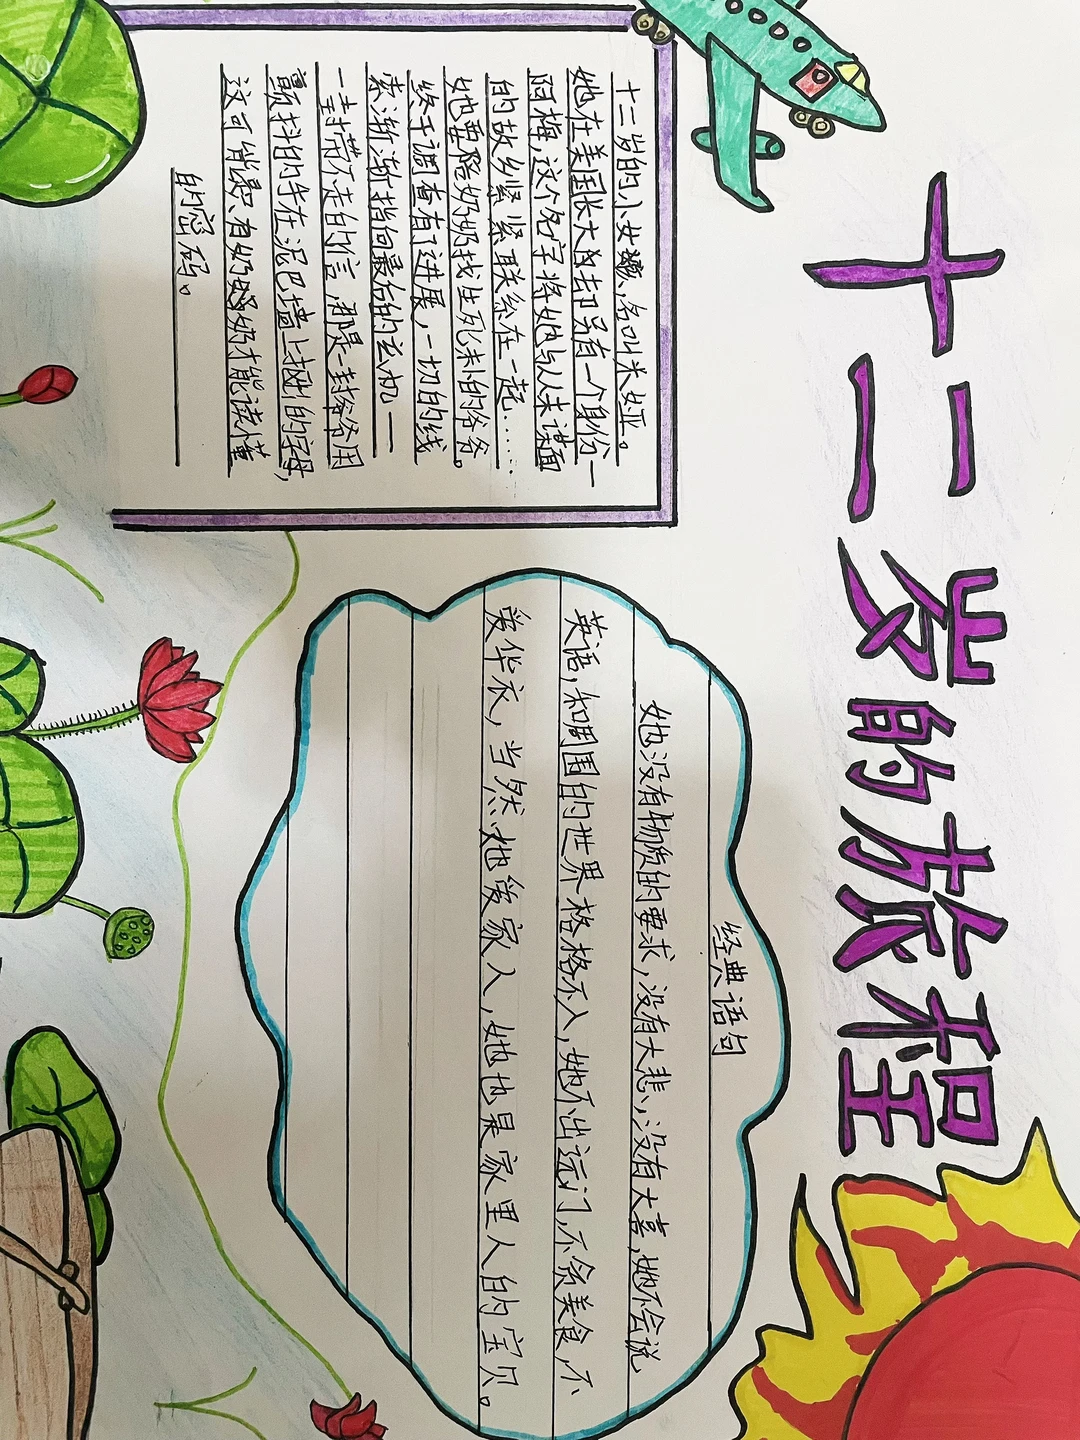 十二岁的旅程
十二岁的小女孩,名叫米娅。
她在美国长大,身却另有一个身份一
阿梅,这个名字将她与从未谋面
的故乡紧紧联系在一起……
她要陪奶奶找生死未卜的爷爷。
终于调查有了进展,一切的线
索渐渐指向最后的玄机——
一封带不走的信,那是一封爷爷用
颤抖的手在泥巴墙上抠出的字母,
这可能是、有奶奶奶才能读懂
的密码。
经典语句
她没有物质的要求,没有大悲,没有大喜,她不会说
英语,和周围的世界格格不入,她不出远门,不贪美食,不
爱华衣,当然,她爱家人,她也是家里人的宝贝。